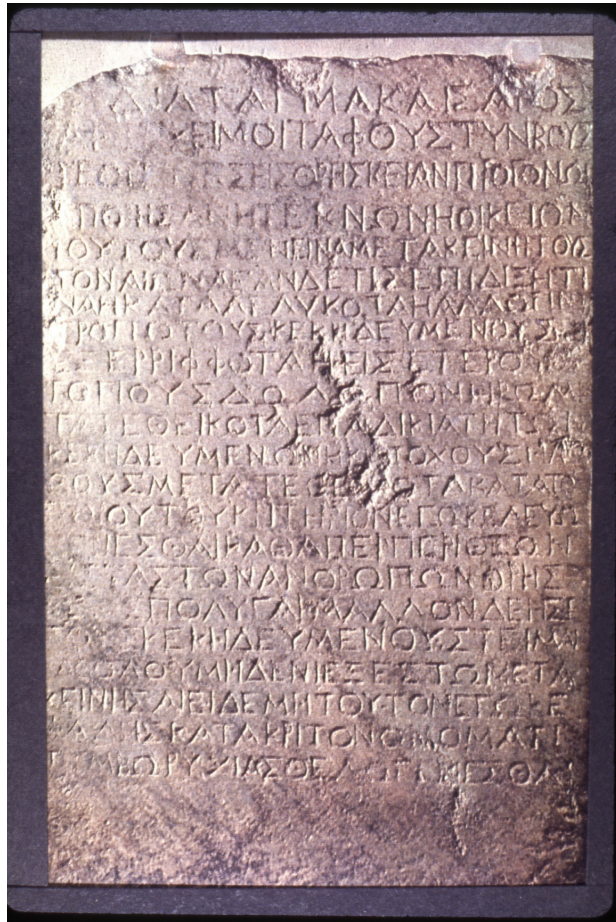 ΔΙΑΤΑΓΜΑ ΚΑΙΣΑΡΟΣ
ΜΟΙ ΤΑΦΟΥΣ ΤΥΝΒΟΥΣ
ΘΡΗΣΚΕΙΑΝ ΠΡΟΓΟΝΩΝ
ΕΠΟΙΗΣΑΝ Η ΤΕΚΝΩΝ Η ΟΙΚΕΙΩΝ
ΤΟΥΤΟΥΣ ΜΕΝΕΙΝ ΑΜΕΤΑΚΕΙΝΗΤΟΥΣ
ΤΟΝ ΑΙΩΝΑ ΕΑΝ ΔΕ ΤΙΣ ΕΠΙΔΙΞΗ ΤΙ
ΝΑ Η ΚΑΤΑΛΕΛΥΚΟΤΑ Η ΑΛΛΩ ΤΙΝΙ
ΤΡΟΠΩ ΤΟΥΣ ΚΕΚΗΔΕΥΜΕΝΟΥΣ ΕΞ
ΕΡΡΙΦΦΟΤΑ Η ΕΙΣ ΕΤΕΡΟΥΣ
ΤΟΠΟΥΣ ΔΩΛΩ ΠΟΝΗΡΩ ΜΕ
ΤΑΤΕΘΕΙΚΟΤΑ ΕΠ ΑΔΙΚΙΑ ΤΗ ΤΩΝ
ΚΕΚΗΔΕΥΜΕΝΩΝ Η ΚΑΤΟΧΟΥΣ Η ΛΙ
ΘΟΥΣ ΜΕΤΑΤΕΘΕΙΚΟΤΑ ΚΑΤΑ ΤΟΥ
ΤΟΙΟΥΤΟΥ ΚΡΙΤΗΡΙΟΝ ΕΓΩ ΚΕΛΕΥΩ
ΓΕΝΕΣΘΑΙ ΚΑΘΑΠΕΡ ΠΕΡΙ ΘΕΩΝ
ΤΑΣ ΤΩΝ ΑΝΘΡΩΠΩΝ ΘΡΗΣ
ΠΟΛΥ ΓΑΡ ΜΑΛΛΟΝ ΔΕΗΣΕΙ
ΤΟΥΣ ΚΕΚΗΔΕΥΜΕΝΟΥΣ ΤΕΙΜΑΝ
ΚΑΘΟΛΟΥ ΜΗΔΕΝΙ ΕΞΕΣΤΩ ΜΕΤΑ
ΚΕΙΝΗΣΑΙ ΕΙ ΔΕ ΜΗ ΤΟΥΤΟΝ ΕΓΩ ΚΕ
ΦΑΛΗΣ ΚΑΤΑΚΡΙΤΟΝ ΟΝΟΜΑΤΙ
ΤΥΜΒΩΡΥΧΙΑΣ ΘΕΛΩ ΓΕΝΕΣΘΑΙ